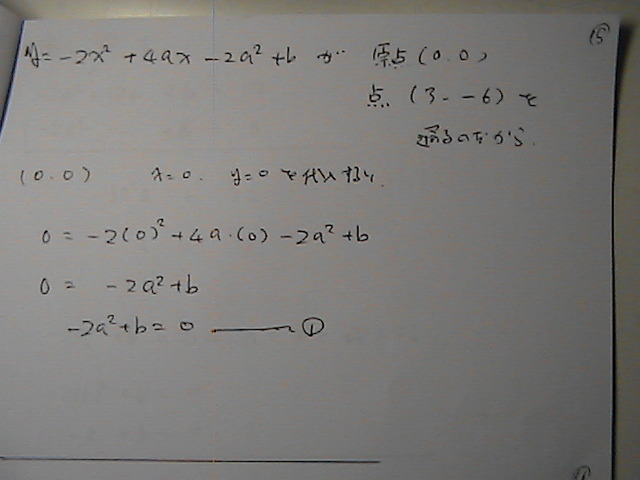 ⑮
y = -2x² + 4ax - 2a² + b が 原点 (0.0)
点 (3. -6) を
通るのだから.
(0.0) x=0. y=0 を代入すると.
0 = -2(0)² + 4a・(0) - 2a² + b
0 = -2a² + b
-2a² + b = 0 ――― ①